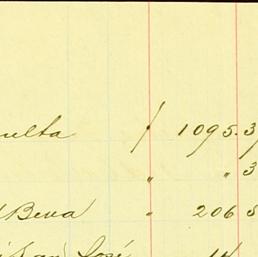 ulta / 1095.3
" " 3
Beva " 206 5
San José 14